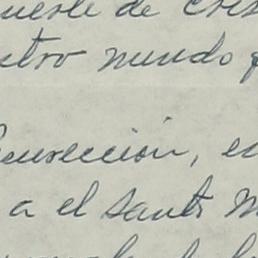 muerte de Cris
ntro mundo
esurección, en
a el santo M